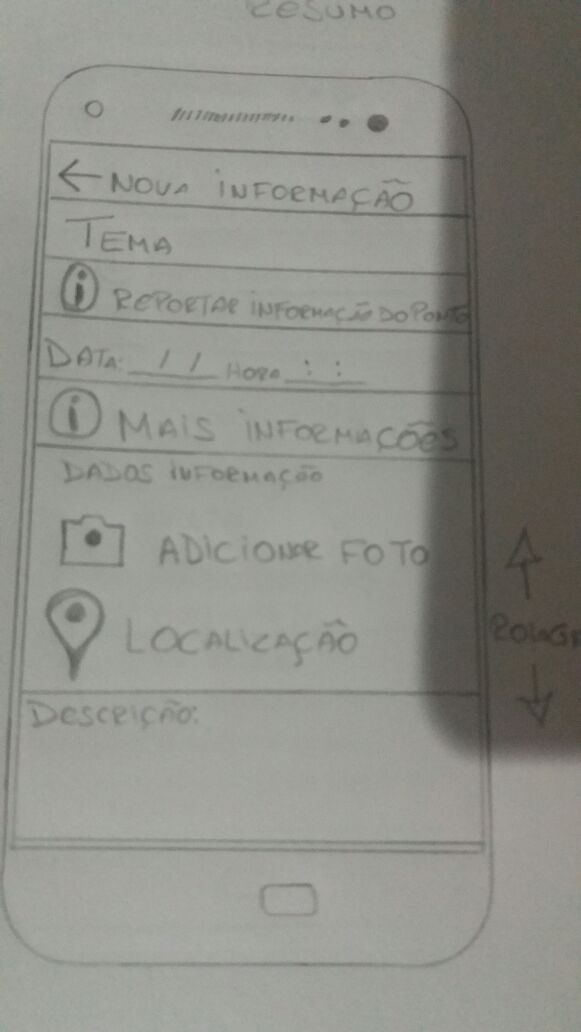 RESUMO
NOVA INFORMAÇÃO
TEMA
i REPORTAR INFORMAÇÃO DO PONTO
DATA: __/__/__ HORA __:__:__
i MAIS INFORMAÇÕES
DADOS INFORMAÇÃO
ADICIONAR FOTO
LOCALIZAÇÃO
DESCRIÇÃO: